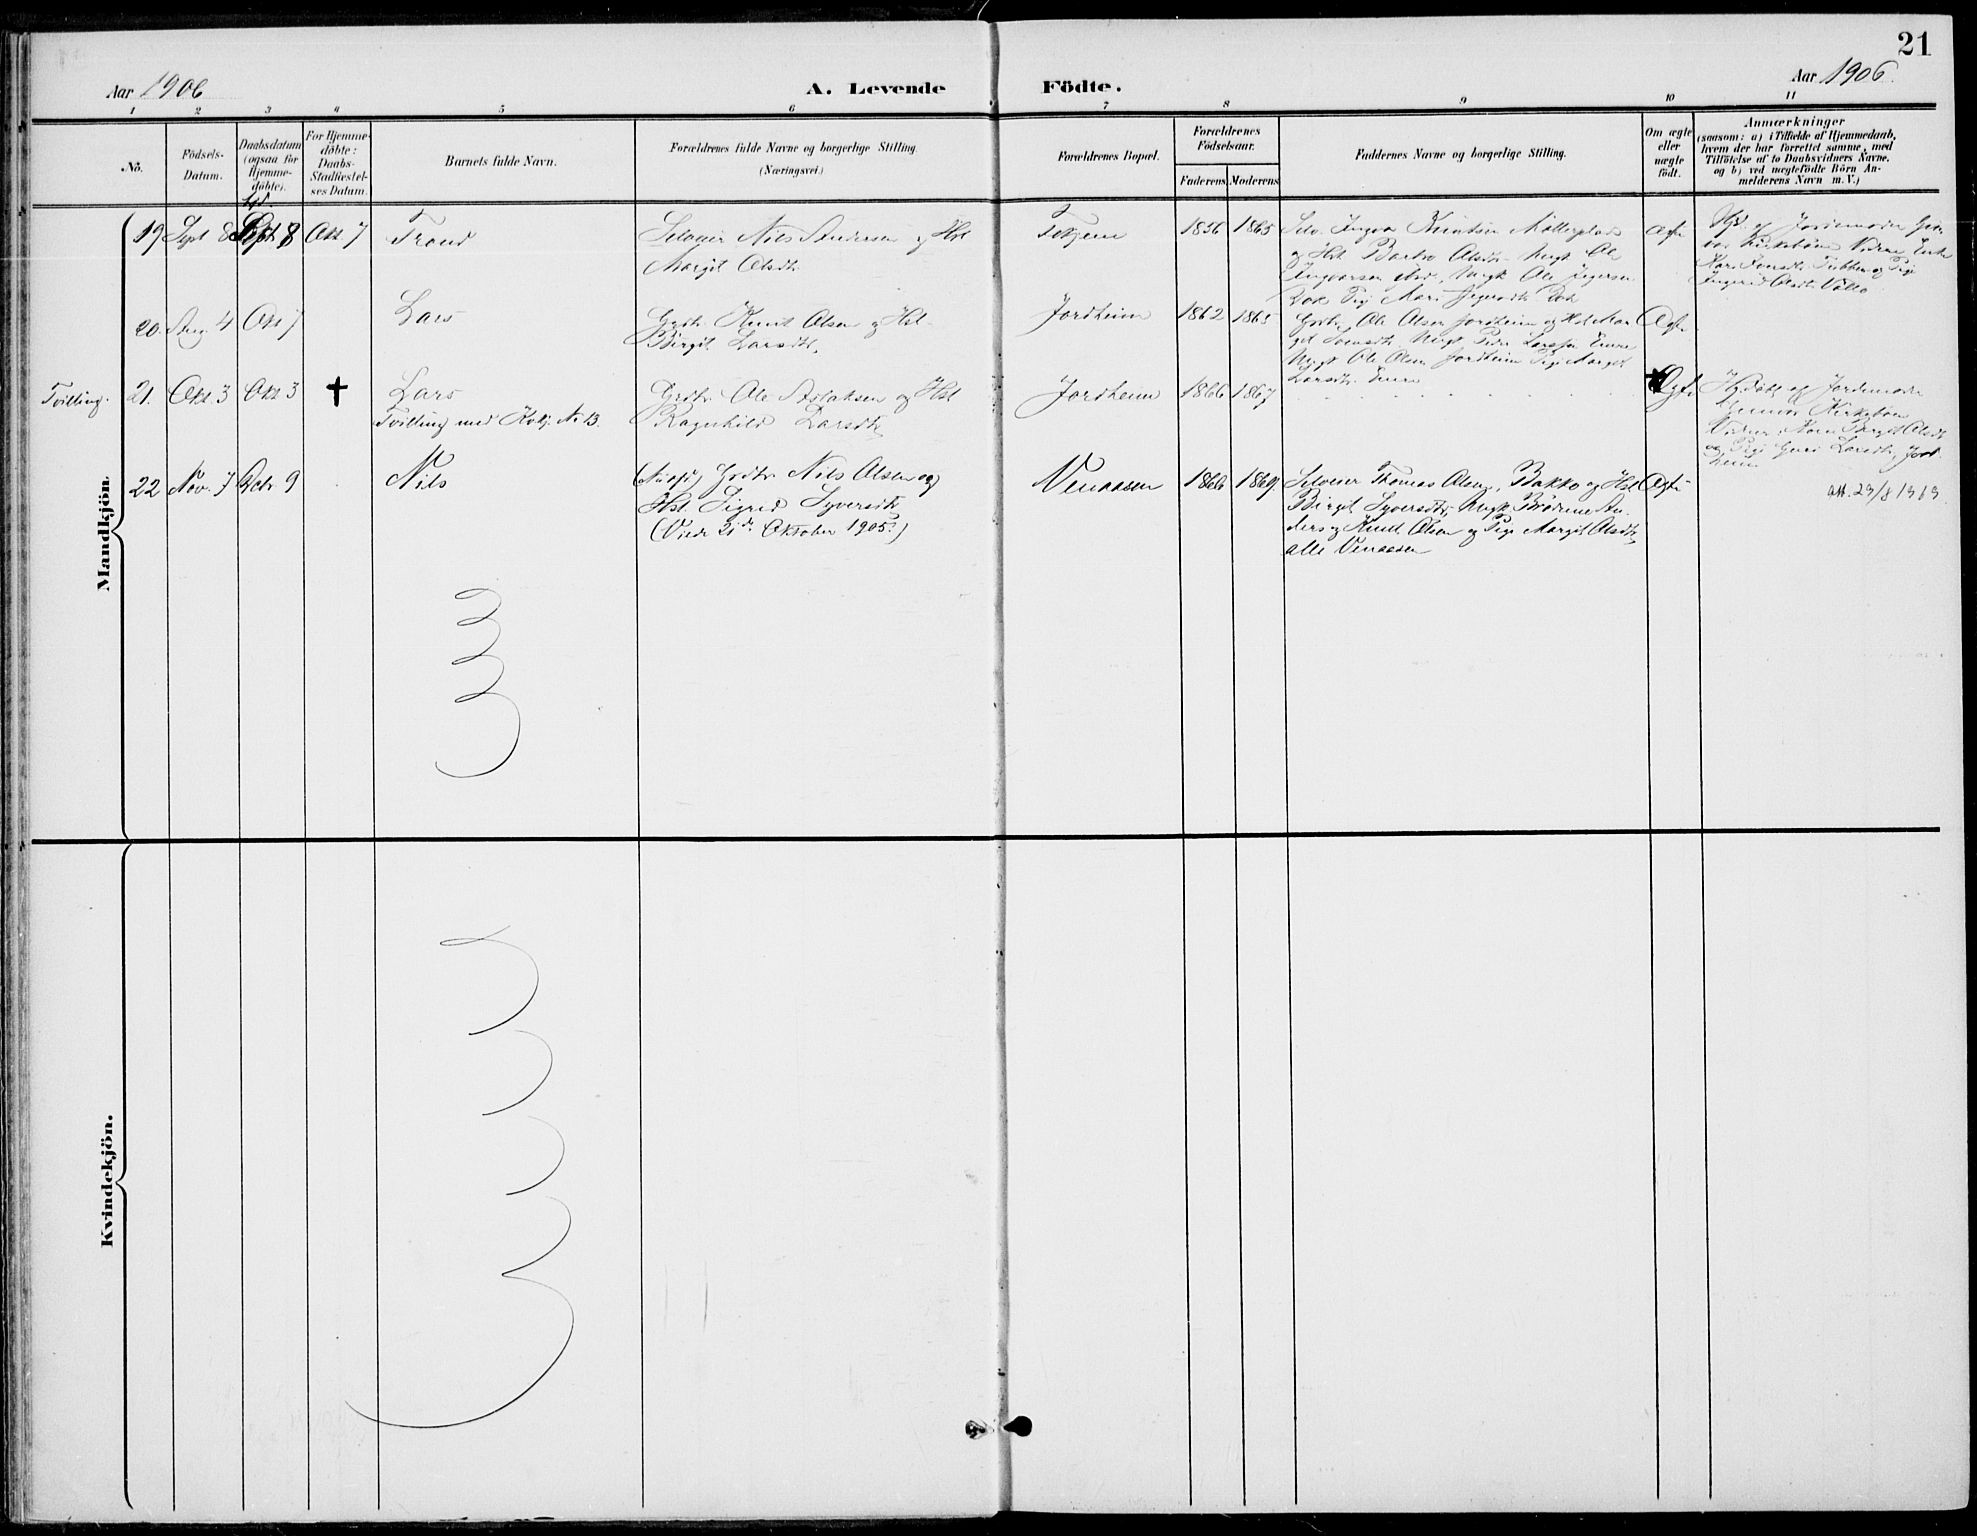 21
Aar 1906
A. Levende Födte.
Aar 1906.
1 2 3 4 5 6 7 8 9 10 11
No.
Födsels-
Datum.
Daabsdatum
(ogsaa for
Hjemme-
döbte).
For Hjemme-
döbte:
Daabs-
Stadfæstel-
ses Datum.
Barnets fulde Navn.
Forældrenes fulde Navne og borgerlige Stilling.
(Næringsvei.)
Forældrenes Bopæl.
Forældrenes
Födselsaar.
Faderens Moderens
Faddernes Navne og borgerlige Stilling.
Om ægte
eller
uægte
födt.
Anmærkninger
(saasom: a) i Tilfælde af Hjemmedaab,
hvem der har forrettet samme, med
Tilföielse af to Daabsvidners Navne,
og b) ved uægtefödte Börn An-
melderens Navn m. V.)
Mandkjön.
19 Sept 8 Hjd. Sept 8 Okt 7 Trond
Selveier Nils Andersen og Hst
Margit Olsdt.
1856 1865
Selv. Ingvar Knutsen Mölleplads
og Hst Barbro Olsdt. Ungk Ole
Ingvarsen ibid, Ungk Ole
Pige Mari
Ægte
Hjd. af Jordemoder Gun-
vor Kirkebøen Vidner Enke
Kari og Pige
Ingerid Olsdt.
20. Aug 4 Okt 7 Lars
Grdbr. Knut Olsen og Hst.
Birgit Larsdt.
Jordheim 1862 1865
Grdbr Ole Olsen Jordheim og Hst Mar
git Svensdt. Ungk Peder Larsen
Ungk Ole Olsen Jordheim Pige Margit
Larsdt.
Ægte
Tvilling. 21. Okt. 3 Okt 3 ✝ Lars
Tvilling med Kvkj. No 13.
Grdbr. Ole Aslaksen og Hst
Ragnhild Larsdt
Jordheim 1866 1867
Ægte
Hjdøbt af Jordemoder
Gunvor Kirkebøen
Vidner: Birgit Olsdt
og Pige Guri Larsdt, Jord
heim
22 Nov. 7 Dcbr. 9 Nils
Grdbr Nils Olsen og
Hst. Sigrid Syversdt
(Viede 21de Oktober 1905.)
Venaasen 1866 1869.
Selveier Thomas Olsen, Bakko og Hst
Birgit Syversdt, Ungk. Brødrene An-
ders og Knut Olsen og Pige Margit Olsdt,
alle Venaasen
Ægte
att. 23/8 1963.
Kvindekjön.